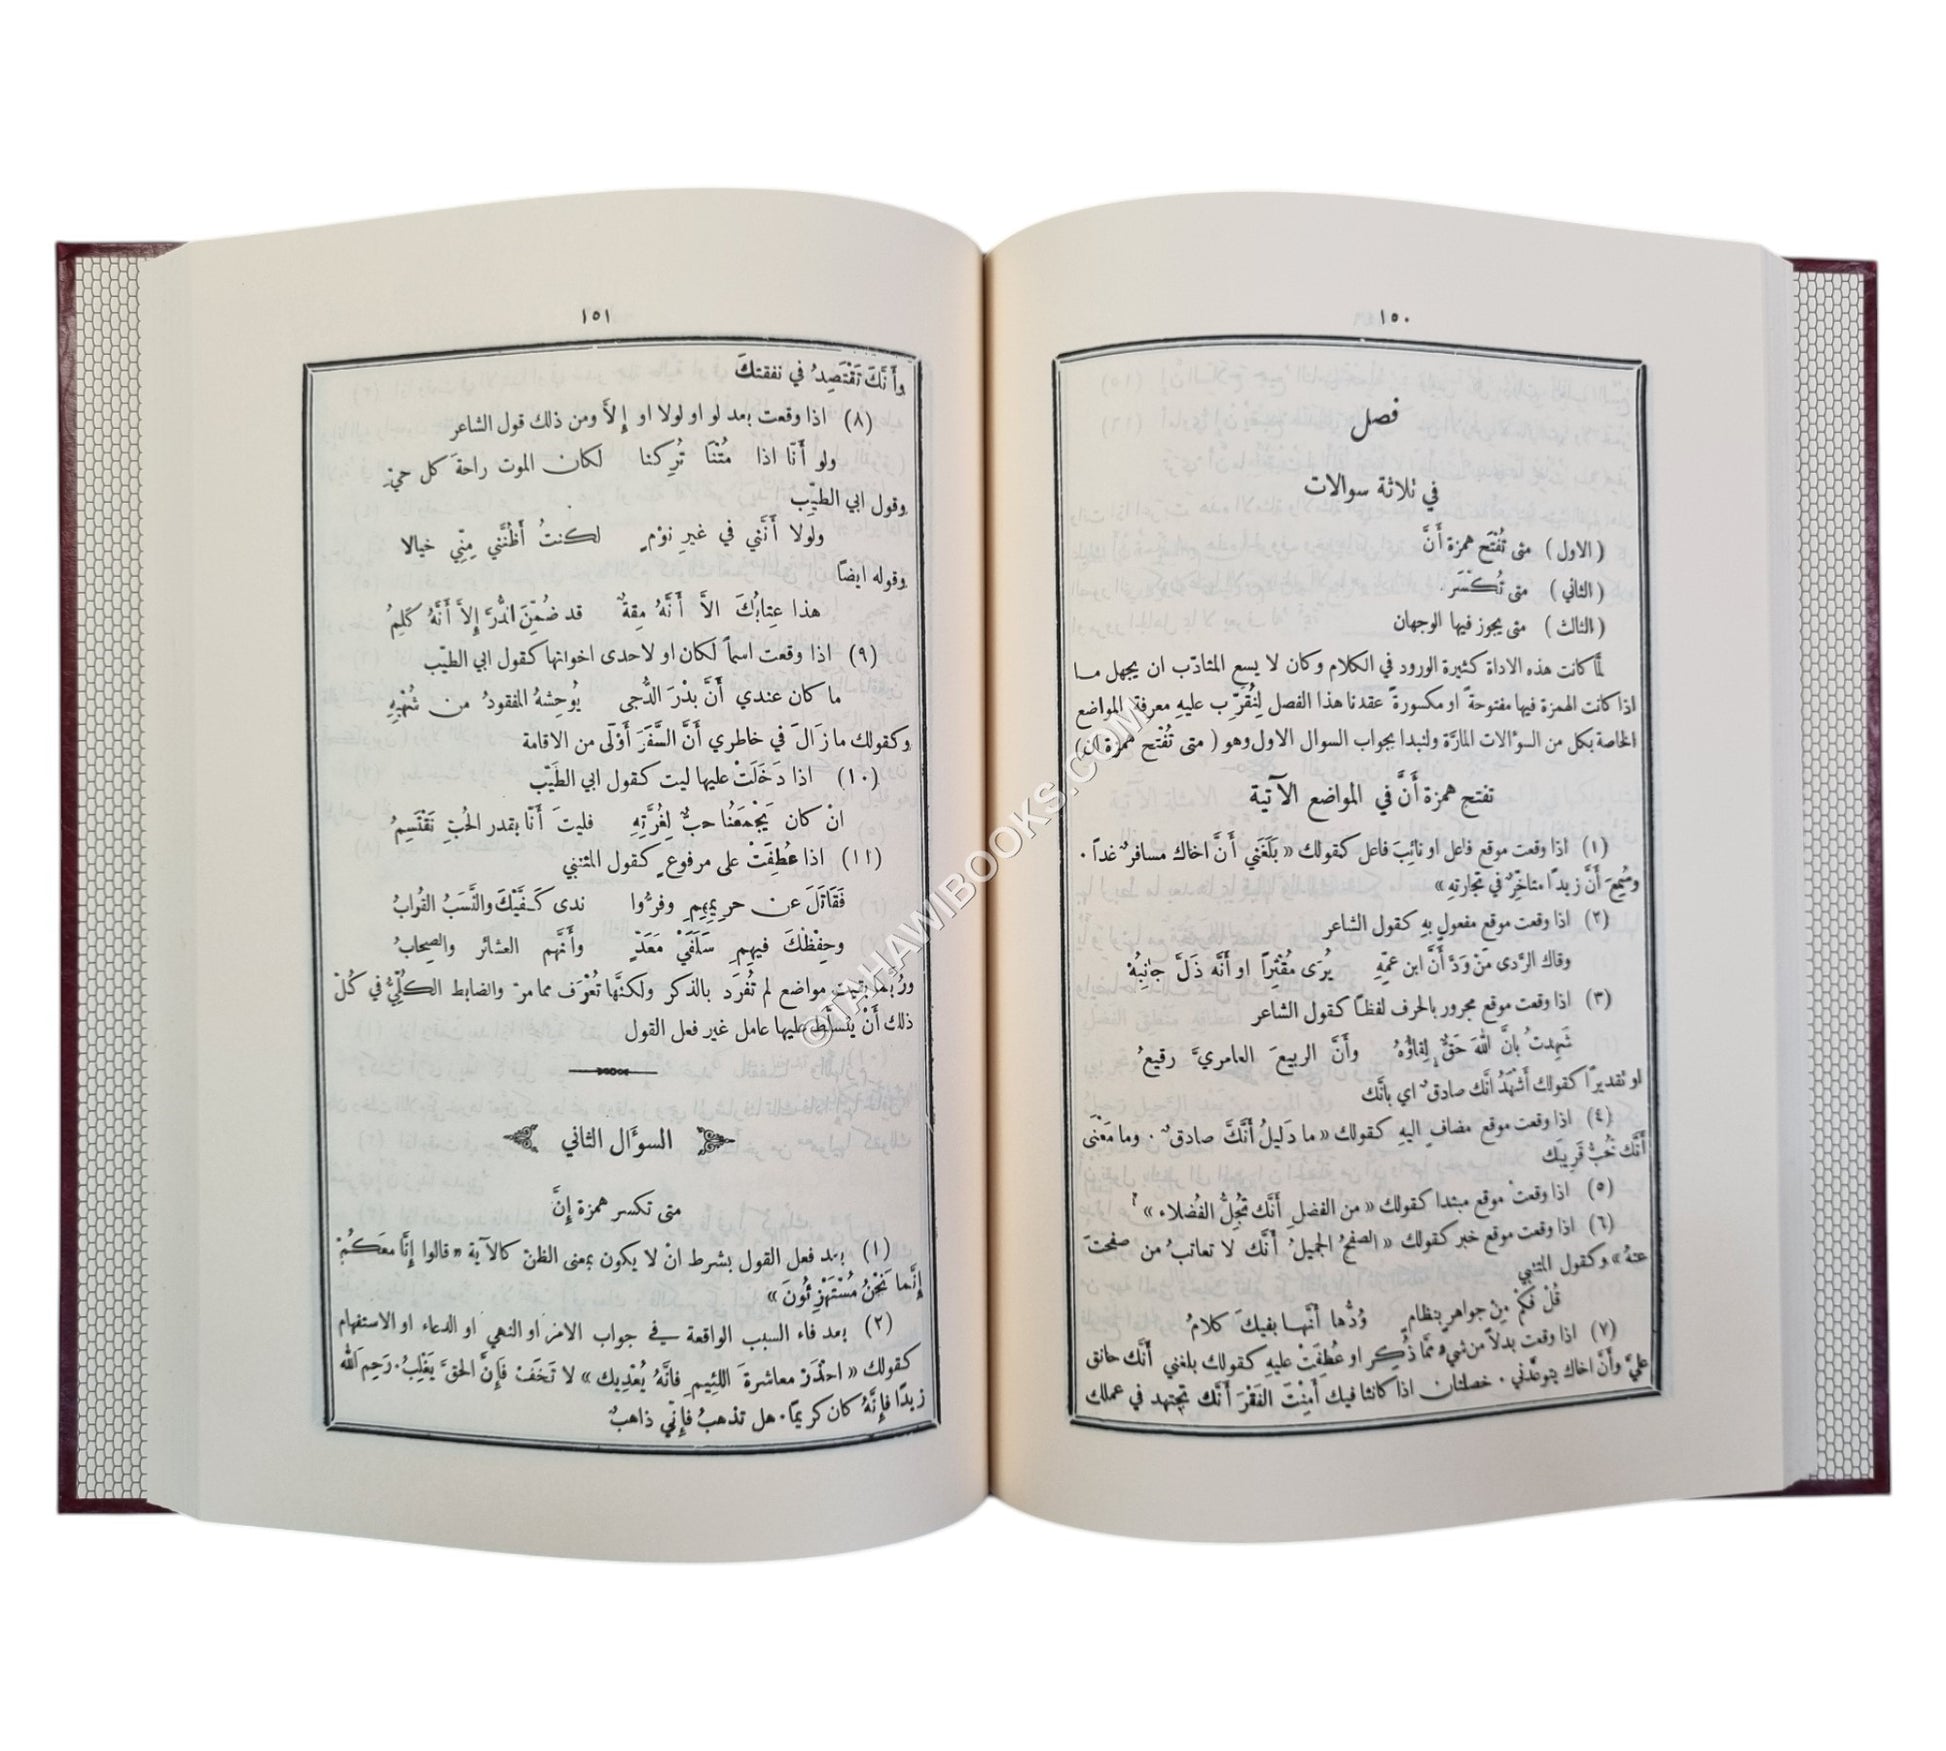 ١٥٠
فصل
في ثلاثة سوالات
(الاول) متى تُفْتَح همزة أَنَّ
(الثاني) متى تُكْسَر.
(الثالث) متى يجوز فيها الوجهان
لمَّا كانت هذه الاداة كثيرة الورود في الكلام وكان لا يسع المتادّب ان يجهل مــا
اذا كانت الهمزة فيها مفتوحةً او مكسورةً عقدنا هذا الفصل لِنُقَرِّب عليهِ معرفة المواضع
الخاصة بكل من السوَّالات المارَّة ولنبدا بجواب السوال الاول وهو (متى تُفْتح همزة أَنَّ)
تفتح همزة أَنَّ في المواضع الآتية
(١) اذا وقعت موقع فاعل او نائِبَ فاعل كقولك «بَلَغَني أَنَّ اخاك مسافرٌ غداً.
وسُمِعَ أَنَّ زيدًا متاخِّرٌ في تجارتهِ»
(٢) اذا وقعت موقع مفعولٍ بهِ كقول الشاعر
وقاك الرَّدى مَنْ وَدَّ أَنَّ ابن عمِّهِ يُرَى مُقْتِرًا او أَنَّه ذَلَّ جانِبُهْ
(٣) اذا وقعت موقع مجرور بالحرف لفظًا كقول الشاعر
شَهِدتُ بأَنَّ اللهَ حَقٌّ لِقاؤُهُ وأَنَّ الربيعَ العامريَّ رقيعُ
او تقديرًا كقولك أَشْهَدُ أَنَّك صادقٌ اي بأَنَّك
(٤) اذا وقعت موقع مضافٍ اليهِ كقولك «ما دَليلُ أَنَّكَ صادقٌ. وما مَعْنَى
أَنَّك تُحبُّ قَرِيبَك
(٥) اذا وقعتْ موقع مبتدا كقولك «من الفضلِ أَنَّك تُجِلُّ الفُضلاء»
(٦) اذا وقعت موقع خبر كقولك «الصفحُ الجميلُ أَنَّك لا تعاتبُ من صفحتَ
عنهُ» وكقول المتنبي
قُلْ فكَمْ مِنْ جواهرٍ بِنظام وُدُّها أَنَّهــا بفيكَ كلامُ
(٧) اذا وقعت بدلاً من شيءٍ ممَّا ذُكِر او عُطِفَتْ عليهِ كقولك بلغني أَنَّك حانق
عليَّ وأَنَّ اخاك يتوعَّدني. خصلتان اذا كانتا فيك أَمِنْتَ الفَقْرَ أَنَّك تجتهد في عملك
١٥١
وأَنَّكَ تَقْتَصِدُ في نفقتكَ
(٨) اذا وقعت بعد لو او لولا او إِلاَّ ومن ذلك قول الشاعر
ولو أَنّا اذا مُتْنَا تُرِكنا لكان الموت راحةَ كل حيّ
وقول ابي الطيِّب
ولَولا أَنَّني في غيرِ نوْمٍ لكنتُ أَظُنُّني مِنِّي خيالا
وقوله ايضًا
هذا عِتابُكَ الاَّ أَنَّهُ مِقةٌ قد ضُمِّنَ الدُّرَّ إِلاَّ أَنَّهُ كَلِمُ
(٩) اذا وقعت اسماً لكان او لاحدى اخواتها كقول ابي الطيِّب
ما كان عندي أَنَّ بدْرَ الدُّجى يُوحِشهُ المفقودُ من شُهْبِهِ
وكقولك ما زَالَ في خاطري أَنَّ السَّفَرَ أَوْلَى من الاقامة
(١٠) اذا دَخَلَتْ عليها ليت كقول ابي الطيِّب
انْ كان يَجْمَعُنا حبٌّ لِغُرَّتِهِ فليتَ أَنَّا بقدر الحُبِّ نَقْتَسِمُ
(١١) اذا عُطِفَتْ على مرفوعٍ كقول المتنبي
فَقَاتَلَ عن حرِيمِهِمِ وفرُّوا ندى كَفَّيْكَ والنَّسَبُ القُرابُ
وحِفْظُكَ فيهمِ سَلَفَيْ مَعَدٍّ وأَنَّهم العشائر والصِحابُ
ورُبَّما بقيت مواضع لم تُفرَد بالذكر ولكنَّها تُعْرَف مما مرَّ والضابط الكُلِّيُّ في كُلّ
ذلك أَنْ يتسلَّط عليها عامل غير فعل القول
السؤَال الثاني
متى تكسر همزة إِنَّ
(١) بعد فعل القول بشرط انْ لا يكون بمعنى الظنّ كالآية «قالوا إِنَّا معَكُمْ
إِنَّما نَحْنُ مُسْتَهْزِئُونَ»
(٢) بعد فاء السبب الواقعة في جواب الامر او النهي او الدعاء او الاستفهام
كقولك «احْذَرْ معاشرةَ اللئِيمِ فانَّهُ يُعْدِيك» لا تَخَفْ فَإِنَّ الحقَّ يَغْلِبُ. رَحِم الله
زيدًا فإِنَّهُ كان كريمًا. هل تذهبُ فإِنّي ذاهبٌ
©TAHAWIBOOKS.COM